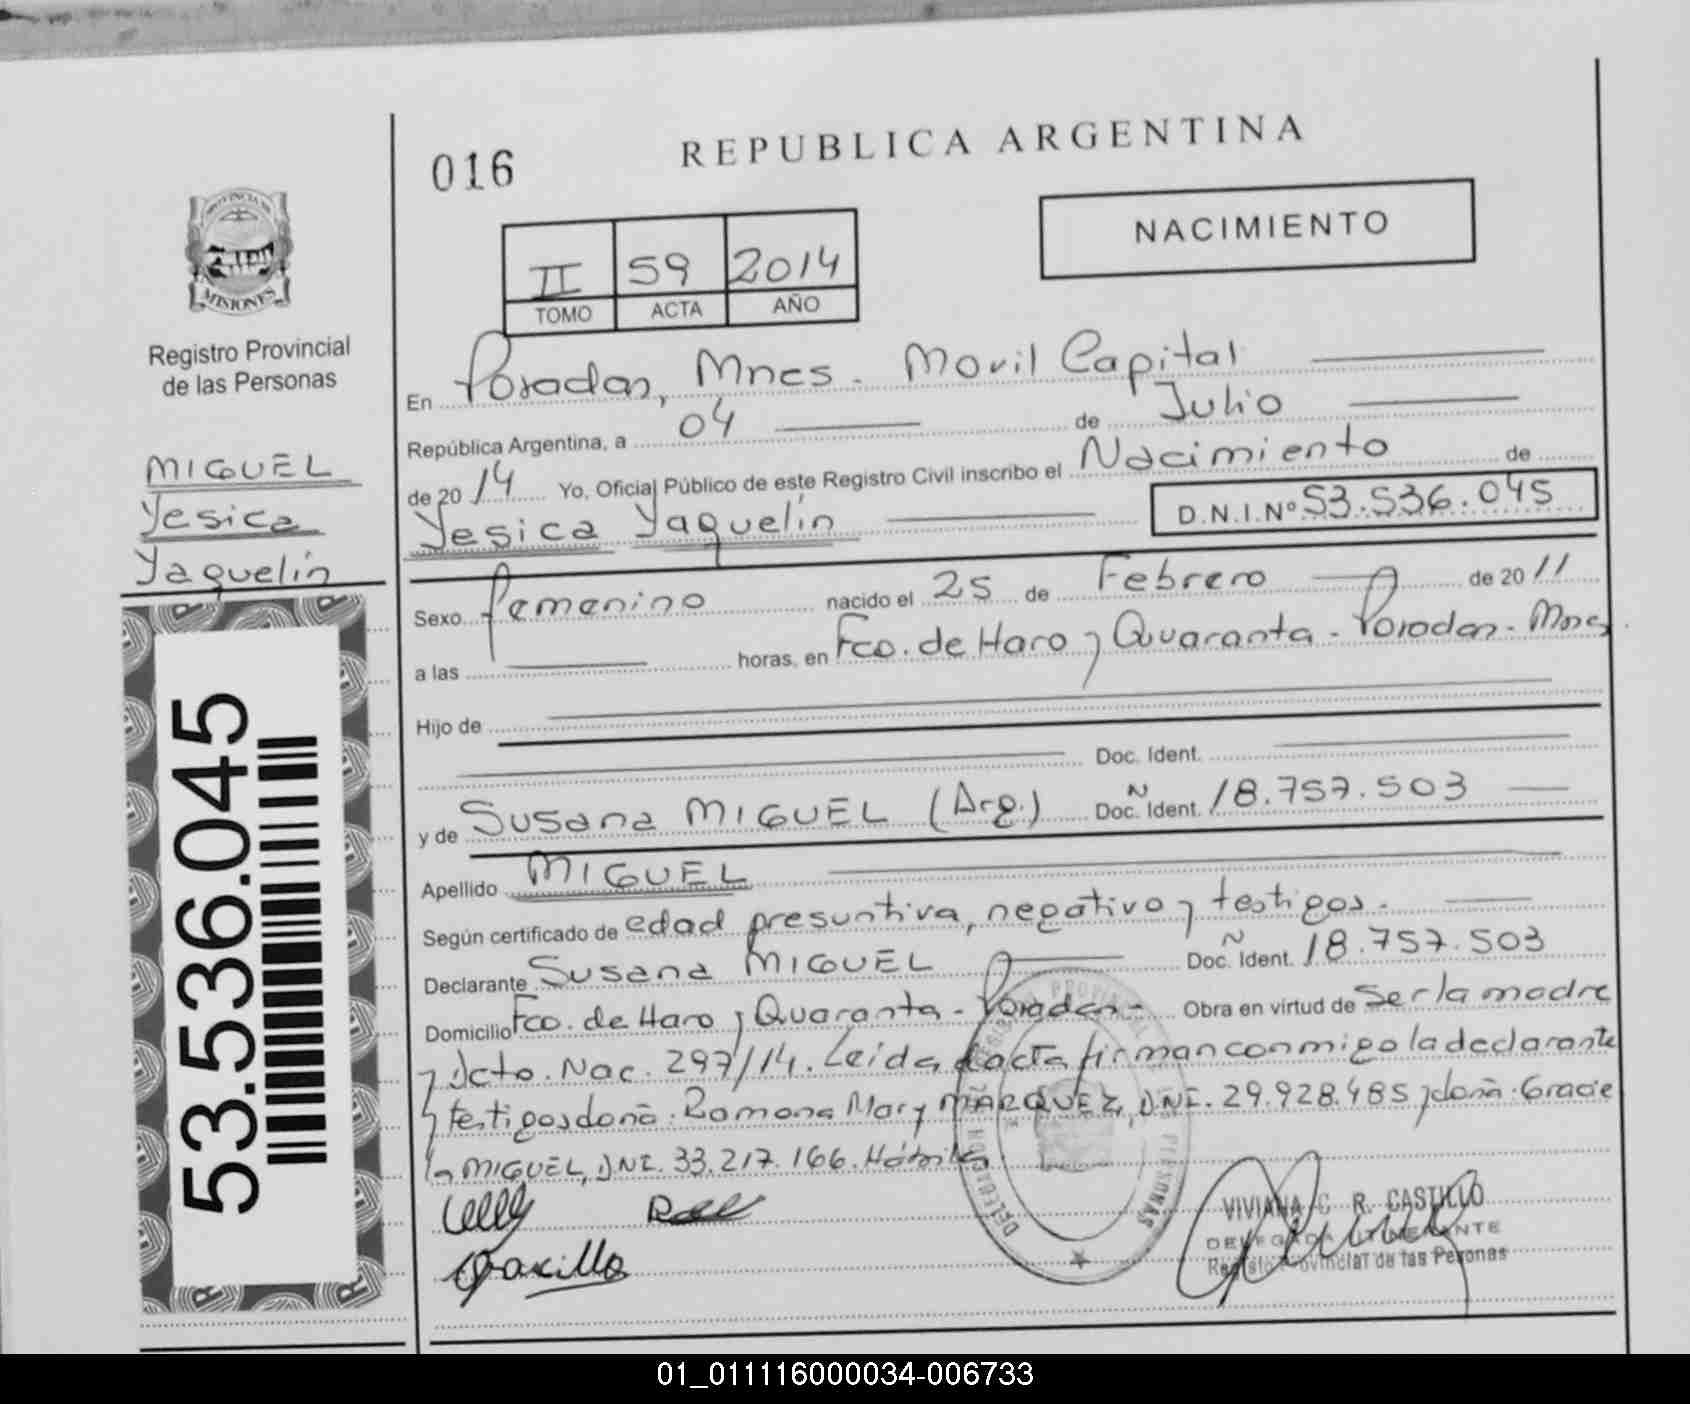 016
REPUBLICA ARGENTINA
NACIMIENTO
II 59 2014
TOMO ACTA AÑO
PROVINCIA DE
MISIONES
Registro Provincial
de las Personas
MIGUEL
Yesica
Yaquelín
53.536.045
En Posadas, Mnes. Movil Capital
República Argentina, a 04 de Julio
de 2014 Yo, Oficial Público de este Registro Civil inscribo el Nacimiento de
Yesica Yaquelín D.N.I.Nº 53.536.045
Sexo Femenino nacido el 25 de Febrero de 2011
a las horas, en Fco. de Haro y Quaranta - Posadas - Mnes.
Hijo de
Doc. Ident.
y de Susana MIGUEL (Arg.) Doc. N Ident. 18.757.503
Apellido MIGUEL
Según certificado de edad presuntiva, negativo y testigos.
Declarante Susana MIGUEL Doc. N Ident. 18.757.503
Domicilio Fco. de Haro y Quaranta - Posadas - Obra en virtud de Ser la madre
y Dcto. Nac. 297/14. Leída el acta firman conmigo la declarante
y testigos doña: Ramona Mary MARQUEZ, DNI. 29.928.485 y doña: Gracie
la MIGUEL, DNI. 33.217.166. Hábiles
VIVIANA C. R. CASTILLO
DELEGADA ITINERANTE
Registro Provincial de las Peronas
01_011116000034-006733